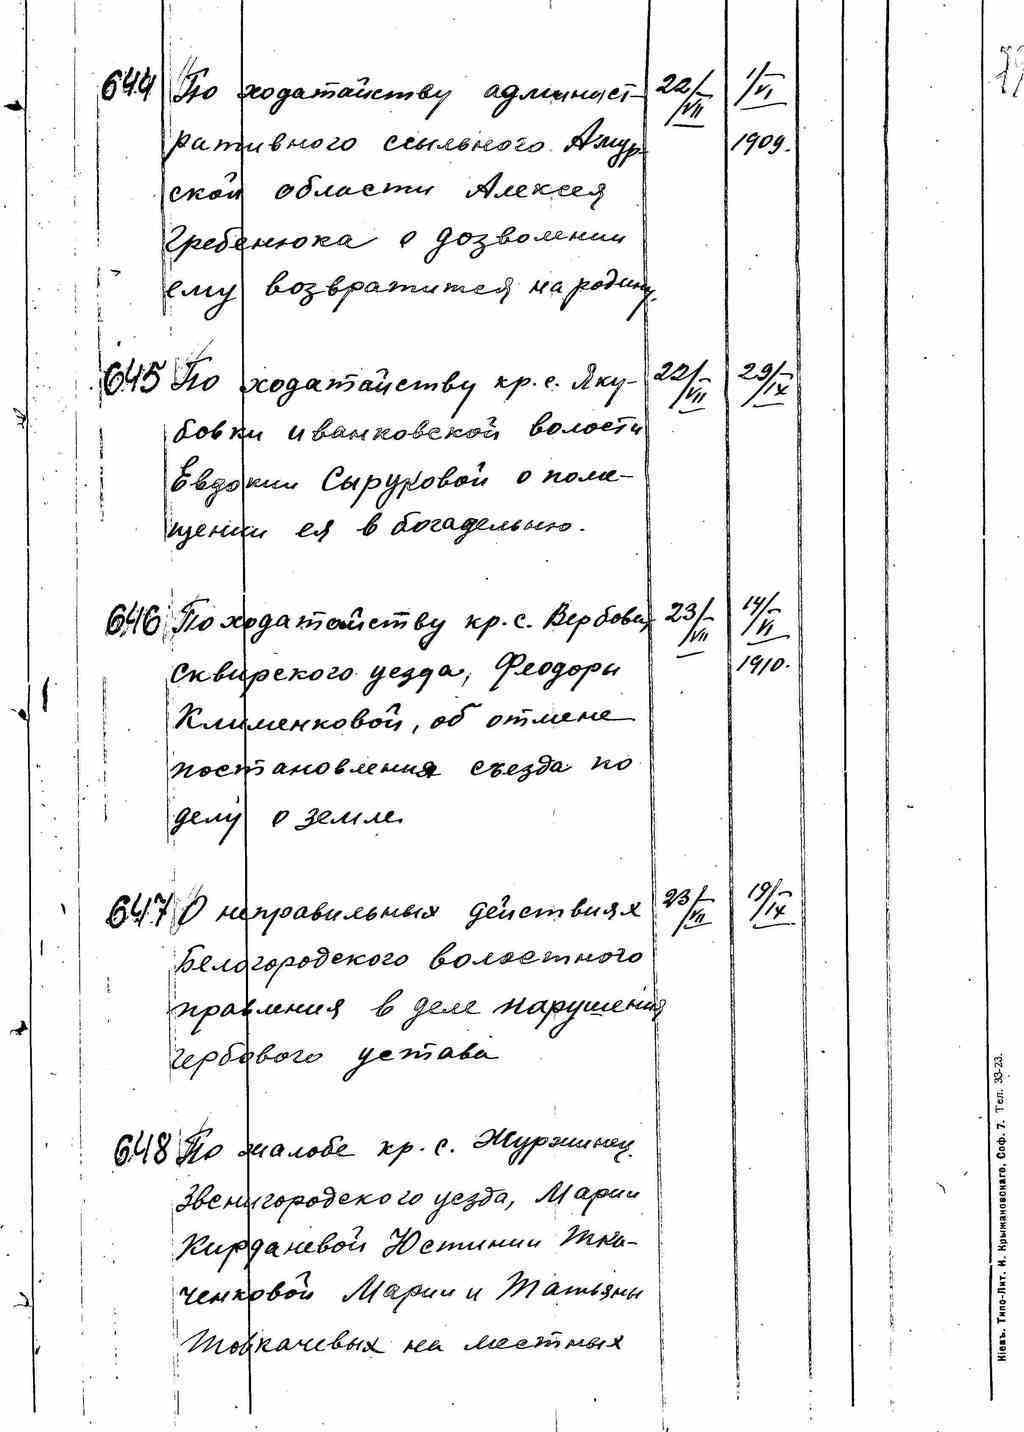 644 По ходатайству админист- 22/VII 1/VI
ративного ссыльного Амур- 1909.
ской области Алексея
Гребенюка о дозволении
ему возвратится на родину.
645 По ходатайству кр. с. Яку- 22/VII 29/IX
бовки иванковской волости
Евдокии Сыруковой о поме-
щении ея в богадельню.
646 По ходатайству кр. с. Вербовец 23/VII 14/VI
Сквирского уезда, Феодоры 1910.
Клименковой, об отмене
постановления съезда по
делу о земле.
647 О неправильных действиях 23/VII 19/IX
Белогородского волостного
правления в деле нарушения
гербового устава
648 По жалобе кр. с. Журжинец
Звенигородского уезда, Марии
Кирданевой Юстинии Тка-
ченковой Марии и Татьяны
Товкачевых на местных
Кіевъ. Типо-Лит. И. Крыжановскаго, Соф. 7. Тел. 33-23.